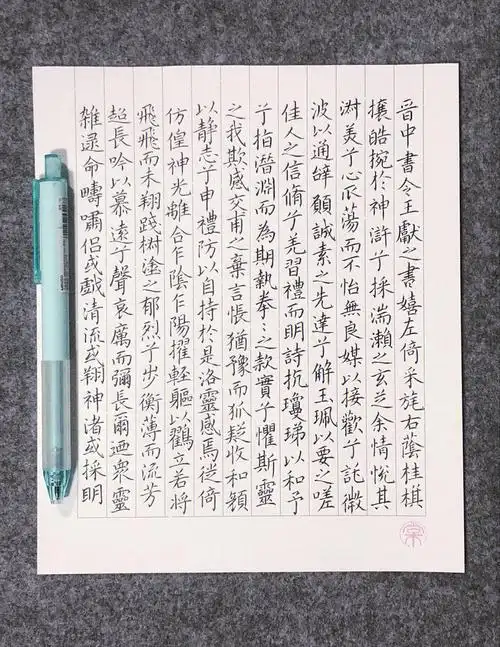 晉中書令王獻之書嬉左倚采旄右蔭桂棋
攘皓捥於神滸兮採湍瀨之玄芝余情悅其
淑美兮心振蕩而不怡無良媒以接歡兮託微
波以通辭願誠素之先達兮解玉珮以要之嗟
佳人之信脩兮羌習禮而明詩抗瓊珶以和予
兮指潛淵而為期執拳〻之款實兮懼斯靈
之我欺感交甫之棄言悵猶豫而狐疑收和顏
以静志兮申禮防以自持於是洛靈感焉徙倚
仿偟神光離合乍陰乍陽擢輕軀以鶴立若將
飛飛而未翔踐椒塗之郁烈兮步衡薄而流芳
超長吟以慕遠兮聲哀厲而彌長爾迺衆靈
雜遝命疇嘯侶或戲清流或翔神渚或採明